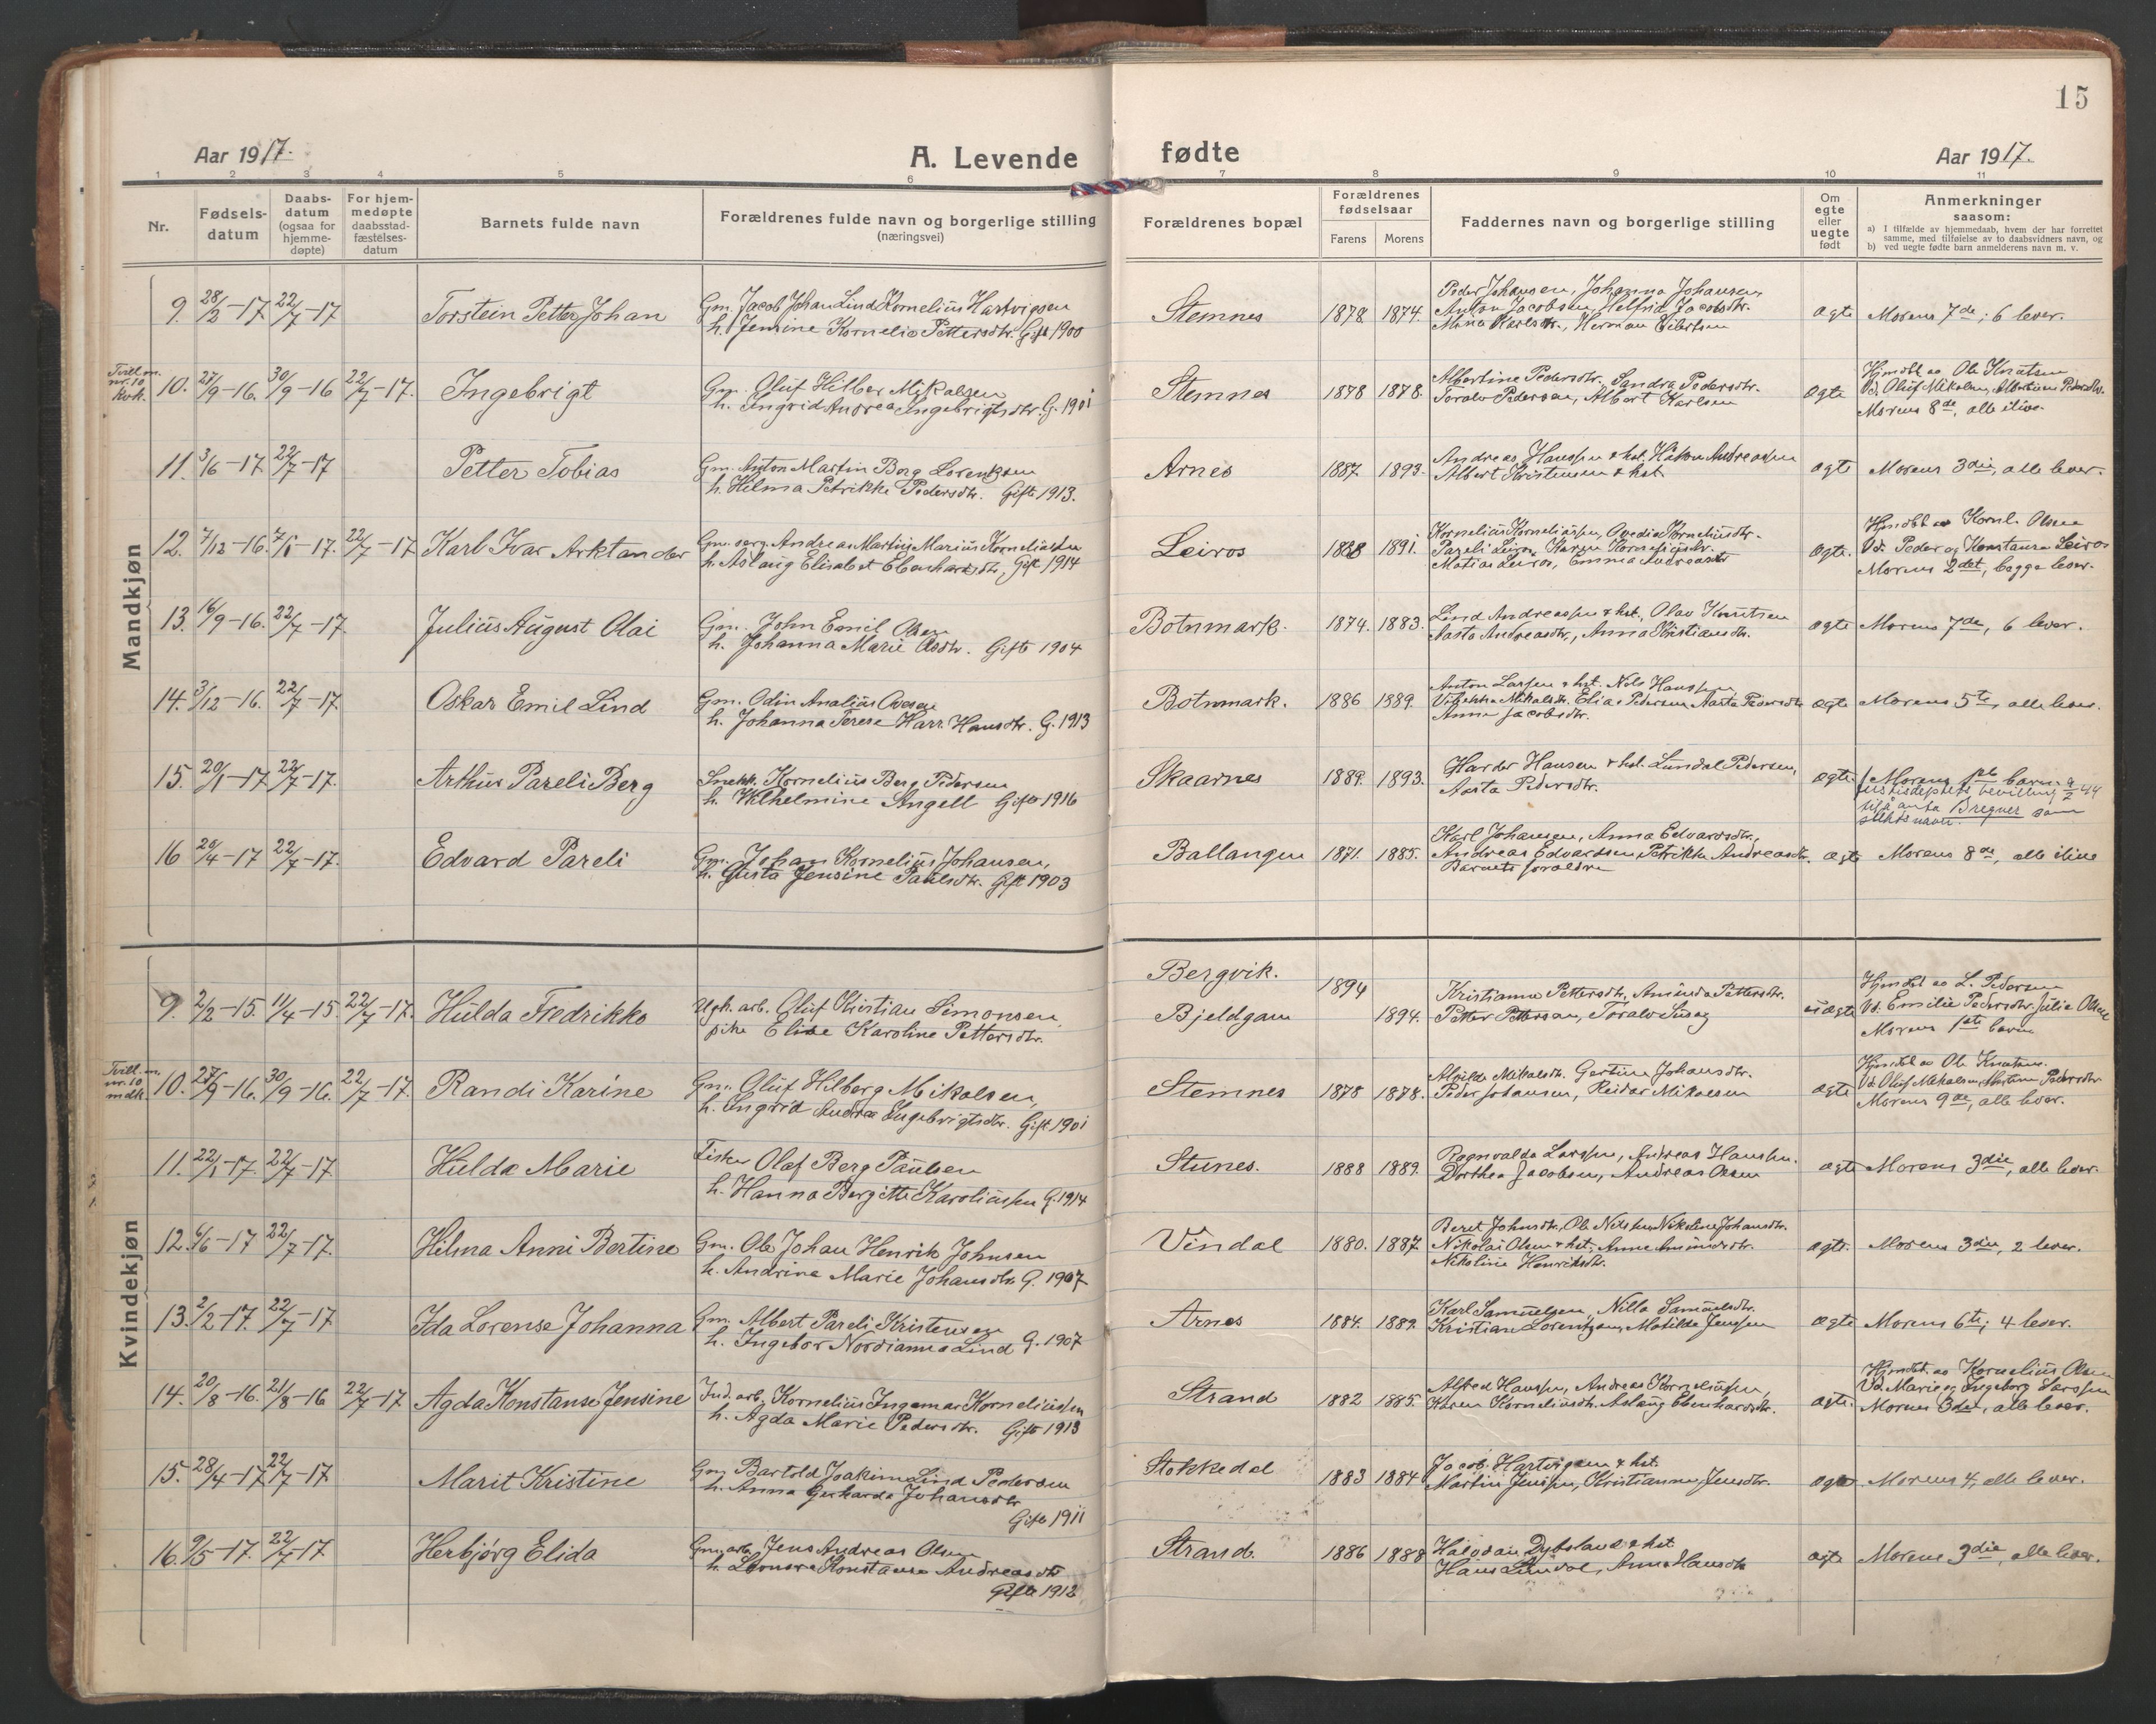 15
Aar 1917.
A. Levende
fødte
Aar 1917.
1 2 3 4 5 6 7 8 9 10 11
Nr.
Fødsels-
datum
Daabs-
datum
(ogsaa for
hjemme-
døpte)
For hjem-
medøpte
daabsstad-
fæstelses-
datum
Barnets fulde navn
Forældrenes fulde navn og borgerlige stilling
(næringsvei)
Forældrenes bopæl
Forældrenes
fødselsaar
Farens Morens
Faddernes navn og borgerlige stilling
Om
egte
eller
uegte
født
Anmerkninger
saasom:
a) I tilfælde av hjemmedaab, hvem der har forrettet
samme, med tilføielse av to daabsvidners navn, og
b) ved uegte fødte barn anmelderens navn m. v.
Mandkjøn
9. 28/2-17 22/7-17 Torstein Petter Johan
Gm. Jacob Johan Lind Kornelius Hartvigsen
h. Jensine Kornelie Pettersdtr. Gift 1900
Stemnes 1878 1874.
Peder Johansen, Johanna Johansen,
Anton Jacobsen, Helfrid Jacobsdtr.
Mina Karlsdtr., Herman Eilertsen
ægte Morens 7de; 6 lever.
Tvill. m.
nr. 10
kvk.
10. 27/9-16. 30/9-16 22/7-17. Ingebrigt
Gm. Oluf Hilber Mikalsen
h. Ingrid Andrea Ingebrigtsdtr. G. 1901
Stemnes 1878 1878.
Albertine Pedersdtr. Sandra Pedersdtr.
Toralv Pedersen, Albert Karlsen
ægte
Hjmdbt av Ole Knutsen
Vd. Oluf Mikalsen, Albertine Pedersdtr.
Morens 8de, alle ilive.
11. 3/6-17 22/7-17 Petter Tobias
Gm. Anton Martin Berg Lorentzen
h. Hilma Petrikke Pedersdtr. Gift 1913.
Arnes 1887 1893.
Andreas Hanssen & hst. Håkon Andreassen
Albert Kristensen & hst.
ægte Morens 3die, alle lever.
12. 7/12-16. 7/1-17. 22/7-17 Karl Ivar Arktander
Gm. serg. Andreas Martin Marius Korneliussen
h. Aslaug Elisabet Ebenhardsdtr, Gift 1914
Leiros 1888 1891.
Kornelius Korneliussen, Ovedie Korneliusdtr.
Pareli Leiros, Karen Korneliusdtr.
Matias Leiros, Emma Andreasdtr
ægte.
Hjmdbt av Kornl. Olsen
Vd. Peder og Konstanse Leiros
Morens 2det, begge lever.
13. 16/9-16. 22/7-17. Julius August Olai
Gm. John Emil Olsen
h. Johanna Marie Olsdtr. Gift 1904
Botnmark. 1874. 1883.
Lind Andreassen & hst., Olav Knutsen
Aasta Andreasdtr., Anna Kristiansdtr.
ægte Morens 7de, 6 lever.
14. 3/12-16. 22/7-17. Oskar Emil Lind
Gm. Odin Analius Ovesen
h. Johanna Terese Harr. Hansdtr. G. 1913
Botnmark. 1886 1889.
Anton Larsen & hst. Nils Hanssen
Vibekke Mikalsdtr. Elias Pedersen, Aasta Pedersdtr
Anna Jacobsdtr.
ægte Morens 5te, alle lever.
15. 20/1-17 22/7-17. Arthur Pareli Berg
Snekk. Kornelius Berg Pedersen
h. Wilhelmine Angell Gift 1916
Skaarnes 1889. 1893.
Harder Hansen & hst. Lundal Pedersen,
Aasta Pedersdtr.
ægte.
Morens 1ste barn.
Justisdeptets bevilling 9/2-44
til å anta Bregner som
slektsnavn.
16 20/4-17 22/7-17. Edvard Pareli
Gm. Johan Kornelius Johansen,
h. Gusta Jensine Paulsdtr. Gift 1903
Ballangen 1871. 1885.
Karl Johansen, Anna Edvardsdtr.
Andreas Edvardsen, Petrikke Andreasdtr.
Barnets foreldre
ægte Morens 8de, alle ilive
Kvindekjøn
9. 2/2-15. 11/4-15. 22/7-17. Hulda Fredrikke
Ugk. arb. Oluf Kristian Simonsen,
pike Elise Karoline Pettersdtr.
Bergvik.
Bjeldgam
1894
1894.
Kristianne Pettersdtr, Aminda Pettersdtr.
Petter Pettersen, Toralv
uægte
Hjmdbt av L. Pedersen
Vd. Emilie Pedersdtr. Julie Olsen
Morens 1ste barn
Tvill. m.
nr. 10
mdk.
10. 27/9-16. 30/9-16. 22/7-17. Randi Karine
Gm. Oluf Hilberg Mikalsen,
h. Ingrid Andrea Ingebrigtsdtr. Gift 1901
Stemnes 1878 1878.
Alvilde Mikalsdtr. Gertine Johansdtr.
Peder Johansen, Reidar Mikalsen
ægte
Hjmdbt av Ole Knutsen.
Vd. Oluf Mikalsen, Albertine Pedersdtr
Morens 9de, alle lever.
11. 22/1-17. 22/7-17. Hulda Marie
Fisker Olaf Berg Paulsen
h. Hanna Bergitte Karoliussen G. 1914
Stunes. 1888 1889.
Ragnvalda Larssen, Andreas Hanssen.
Dorthea Jacobsen, Andreas Olsen
ægte Morens 3die, alle lever.
12. 6/6-17 22/7-17. Hilma Anni Bertine
Gm. Ole Johan Henrik Johnsen
h. Andrine Marie Johansdtr G. 1907
Vindal 1880. 1887
Beret Johnsdtr, Ole Nilssen, Nikoline Johansdtr.
Nikolai Olsen & hst., Anne Amundsdtr.
Nikoline Henriksdtr.
ægte. Morens 3die, 2 lever.
13. 2/2-17. 22/7-17 Ida Lorense Johanna
Gm. Albert Pareli Kristensen
h. Ingebor Nordianna Lind G. 1907
Arnes 1884. 1889.
Karl Samuelsen, Nilla Samuelsdtr.
Kristian Lorentzen, Matilde Jenssen
ægte Morens 6te; 4 lever.
14. 20/8-16. 21/8-16 22/7-17 Agda Konstanse Jensine
Ind. arb. Kornelius Ingemar Korneliussen
h. Agda Marie Pedersdtr. Gift 1913
Strand 1882 1885.
Alfred Hanssen, Andreas Korneliussen,
Karen Korneliusdtr. Aslaug Ebenhardsdtr.
ægte.
Hjmdbt. av Kornelius Olsen
Vd. Marie og Ingeborg Larssen
Morens 3die, alle lever.
15. 28/4-17 22/7-17 Marit Kristine
Gm. Bartold Joakim Lind Pedersen
h. Anna Gerharda Johansdtr
Gift 1911
Stokkedal 1883 1884
Jacob Hartvigsen & hst.
Martin Jenssen, Kristianna Jensdtr.
ægte Morens 4, alle lever.
16. 9/5-17. 22/7-17 Herbjørg Elida
Gm. arb. Jens Andreas Olsen
h. Leonore Konstanse Andreasdtr
Gift 1912
Strand. 1886 1888
Halvdan Dybsland & hst
Hans Lundal, Anna Hansdtr
ægte Morens 3die, alle lever.